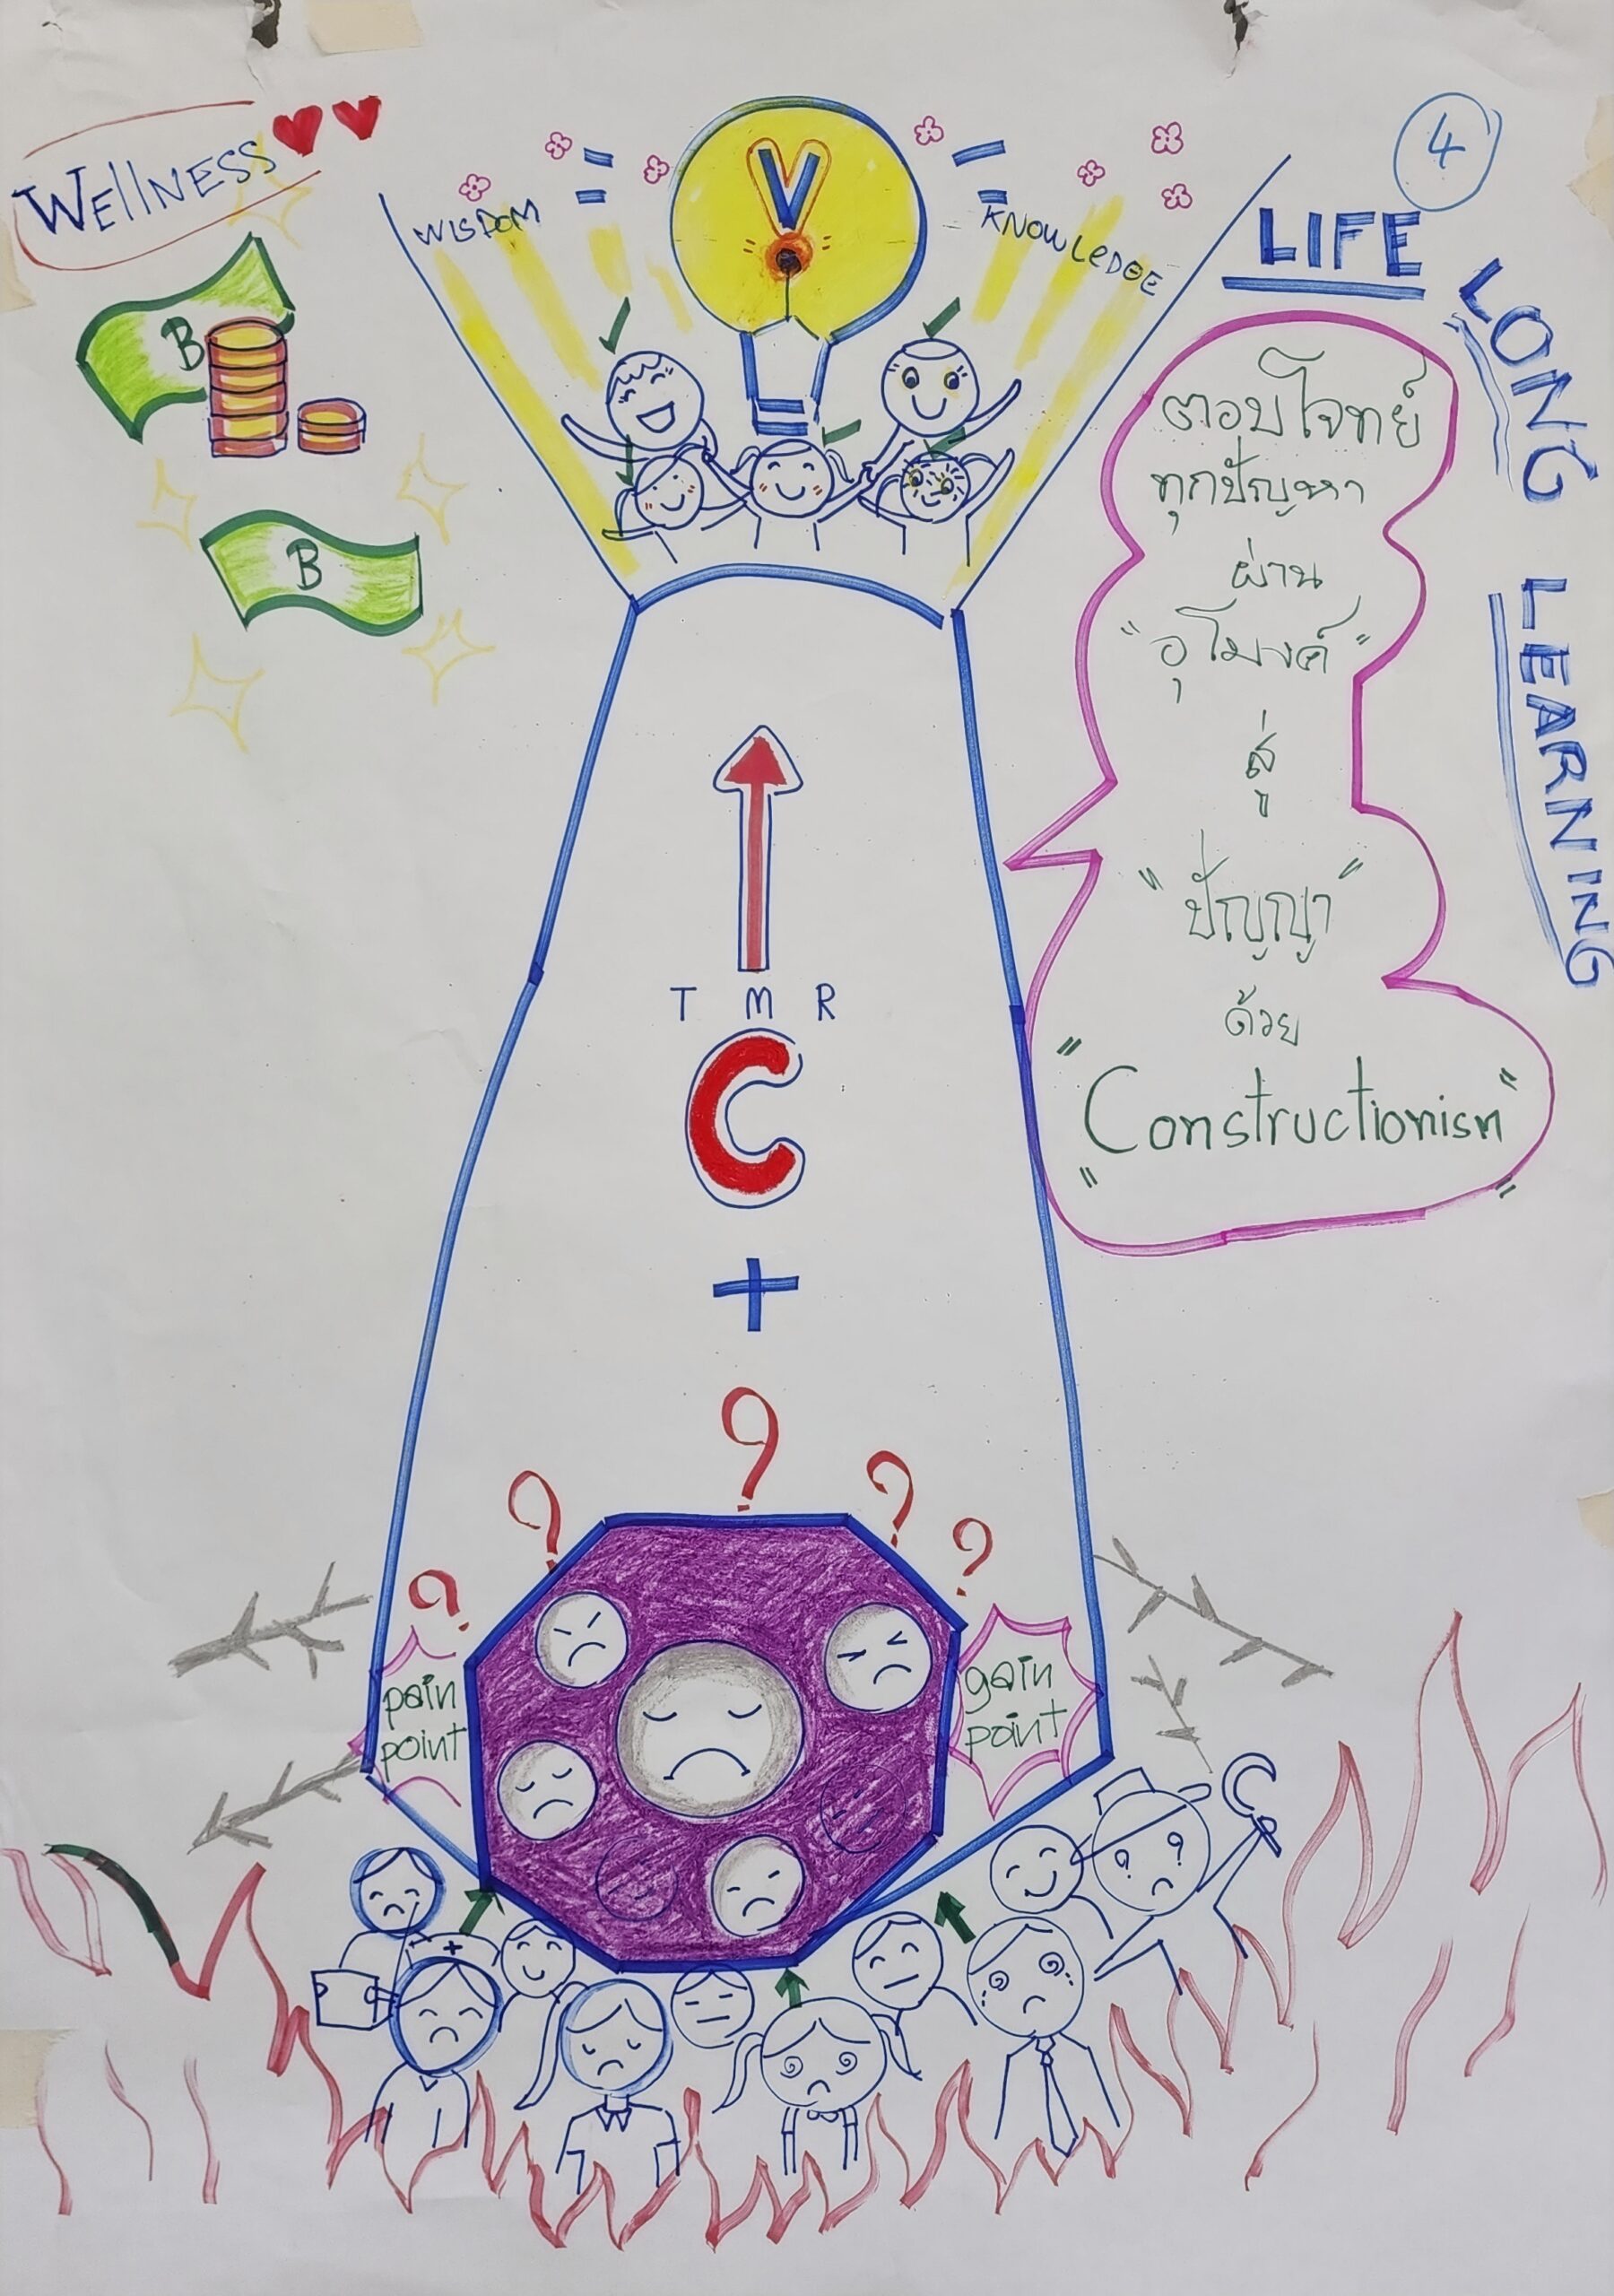 4
WELLNESS
B
B
WISDOM
V
KNOWLEDGE
LIFE
LONG
LEARNING
ตอบโจทย์
ทุกปัญหา
ผ่าน
"อุโมงค์"
สู่
"ปัญญา"
ด้วย
"Constructionism"
T M R
C
+
?
? ?
? ?
pain
point
gain
point
? ?